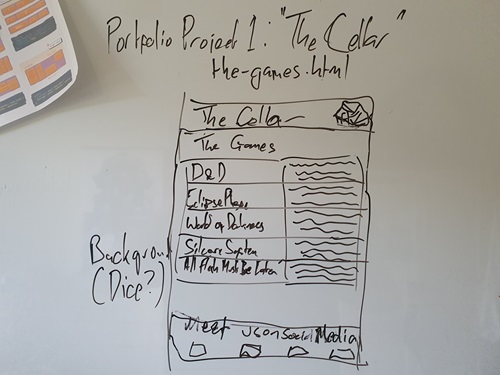 Portfolio Project 1: "The Cellar"
the-games.html
The Cellar
The Games
D&D
Eclipse Phase
World of Darkness
Silcore System
All Flesh Must Be Eaten
Background
(Dice?)
Meet us on Social Media